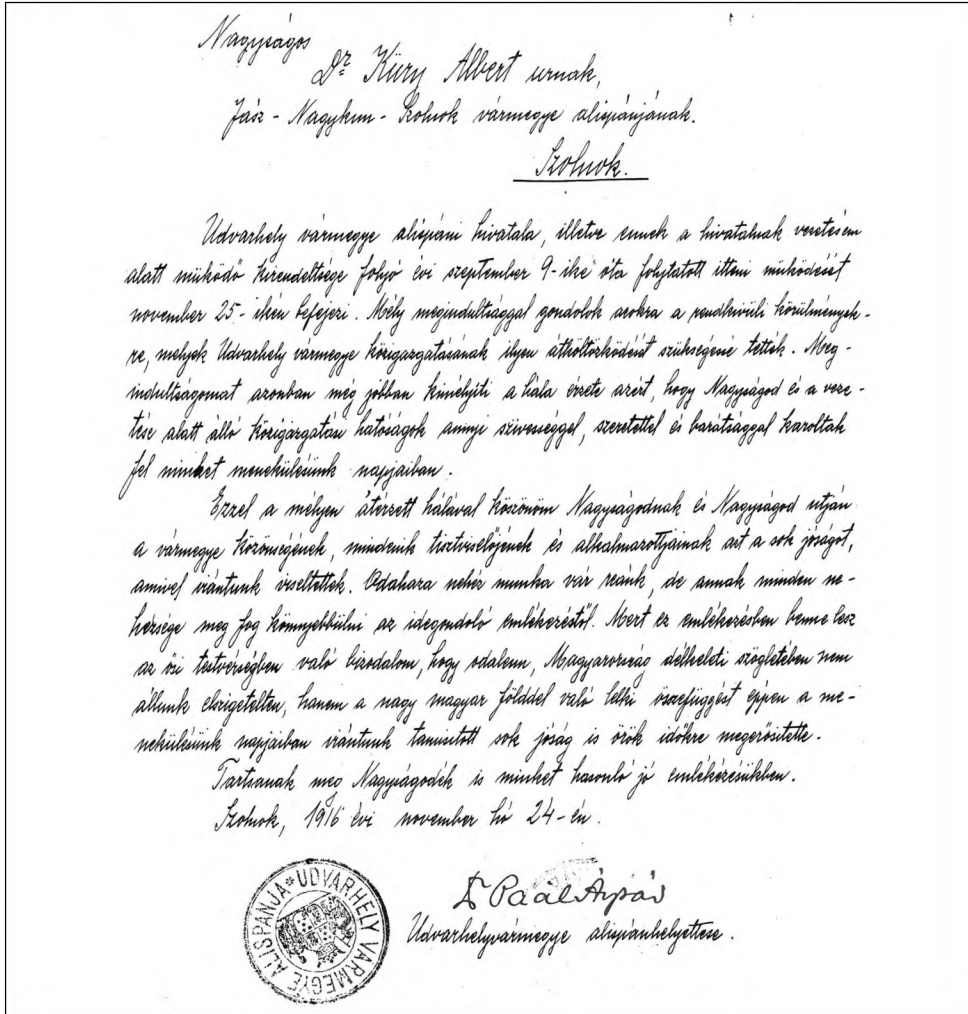 Nagyságos
Dr Küry Albert urnak,
Jász-Nagykun-Szolnok vármegye alispánjának.
Szolnok.
Udvarhely vármegye alispáni hivatala, illetve ennek a hivatalnak vezetésem
alatt müködő kirendeltsége folyó évi szeptember 9-ike óta folytatott itteni müködését
november 25-ikén befejezi. Mély megindultsággal gondolok azokra a rendkivüli körülmények-
re, melyek Udvarhely vármegye közigazgatásának ilyen átköltözködését szükségessé tették. Meg-
indultságomat azonban még jobban kimélyiti a hála érzete azért, hogy Nagyságod és a veze-
tése alatt álló közigazgatási hatóságok annyi szivességgel, szeretettel és barátsággal karoltak
fel minket menekülésünk napjaiban.
Ezzel a mélyen átérzett hálával köszönöm Nagyságodnak és Nagyságod utján
a vármegye közönségének, mindenik tisztviselőjének és alkalmazottjainak azt a sok jóságot,
amivel irántunk viseltettek. Odahaza nehéz munka vár reánk, de annak minden ne-
hézsége meg fog könnyebbülni az idegondoló emlékezéstől. Mert ez emlékezésben benne lesz
az ősi testvérségben való bizodalom, hogy odalenn, Magyarország délkeleti szögletében nem
állunk elszigetelten, hanem a nagy magyar földdel való lelki összefüggést éppen a me-
nekülésünk napjaiban irántunk tanusitott sok jóság is örök időkre megerősitette.
Tartsanak meg Nagyságodék is minket hasonló jó emlékezésükben.
Szolnok, 1916 évi november hó 24-én.
UDVARHELY VÁRMEGYE ALISPÁNJA
Dr Paál Árpád
Udvarhelyvármegye alispánhelyettese.